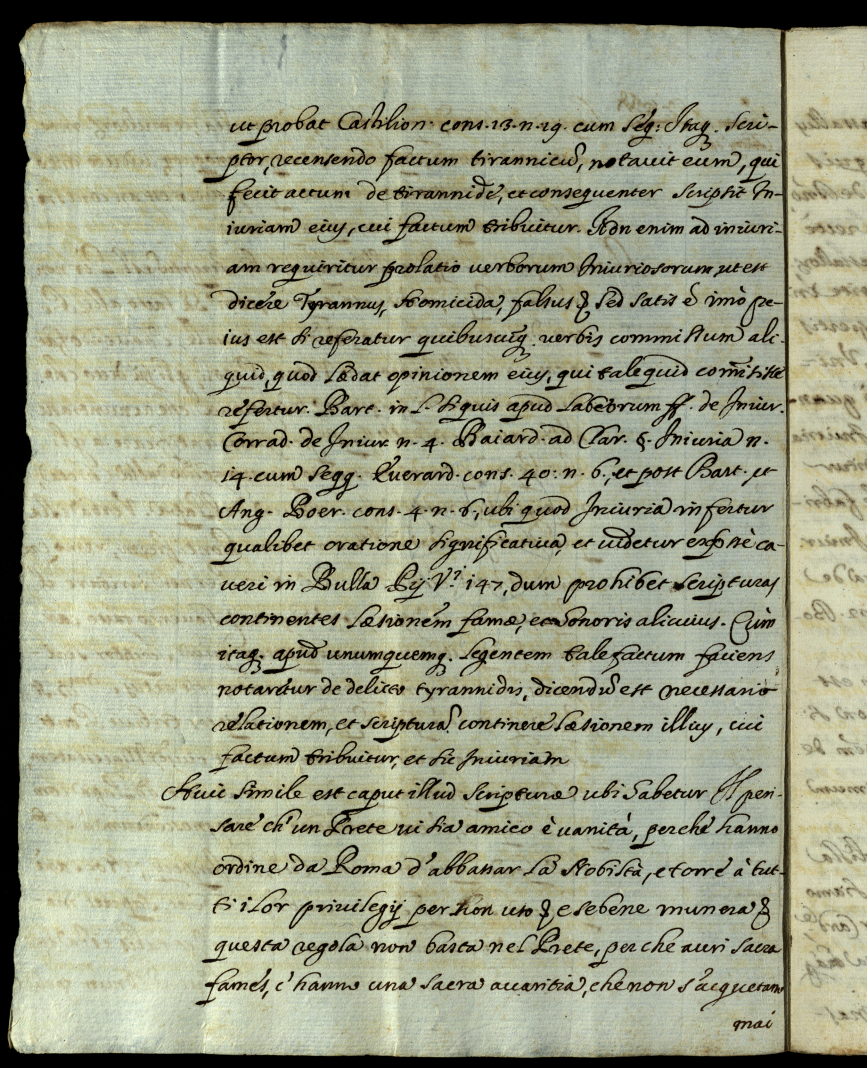 ut probat Castilion. cons. 13. n. 19. cum seq: Itaq. scri-
ptor, recensendo factum tirannicū, notauit eum, qui
fecit actum de tirannide, et consequenter scripsit In-
iuriam eius, cui factum tribuitur. Non enim ad iniuri-
am requiritur prolatio uerborum Iniuriosorum, ut est
dicere Tyrannus, Homicida, falsus & sed satis ē imò pe-
ius est si referatur quibuscūq. verbis commissum ali-
quid, quod lædat opinionem eius, qui tale quid com̄isisse
refertur. Bart. in l. si quis apud Labeorum ff. de Iniur.
Corrad. de Iniur. n. 4. Baiard. ad Clar. §. Iniuria n.
14. cum seqq. Euerard. cons. 40. n. 6., et post Bart. et
Ang. Boer. cons. 4. n. 6., ubi quod Iniuria infertur
qualibet oratione significatiua, et uidetur expssè ca-
ueri in Bulla Pij V.ti 147, dum prohibet scripturas
continentes læsionem famæ, et honoris alicuius. Cùm
itaq. apud unumquemq. legentem tale factum faciens
notaretur de delicto tyrannidis, dicendū est necessario
relationem, et scripturā continere læsionem illius, cui
factum tribuitur, et sic Iniuriam
Huic simile est caput illud scripturæ ubi habetur Il pen-
sare ch' un Prete ui sia amico è uanità, perchè hanno
ordine da Roma d'abbassar la Nobiltà, e torre à tut-
ti i lor priuilegij per non uso & e sebene munera &
questa regola non basta nel Prete, perche auri sacra
fames, c' hanno una sacra auaritia, che non s'acquetano
mai